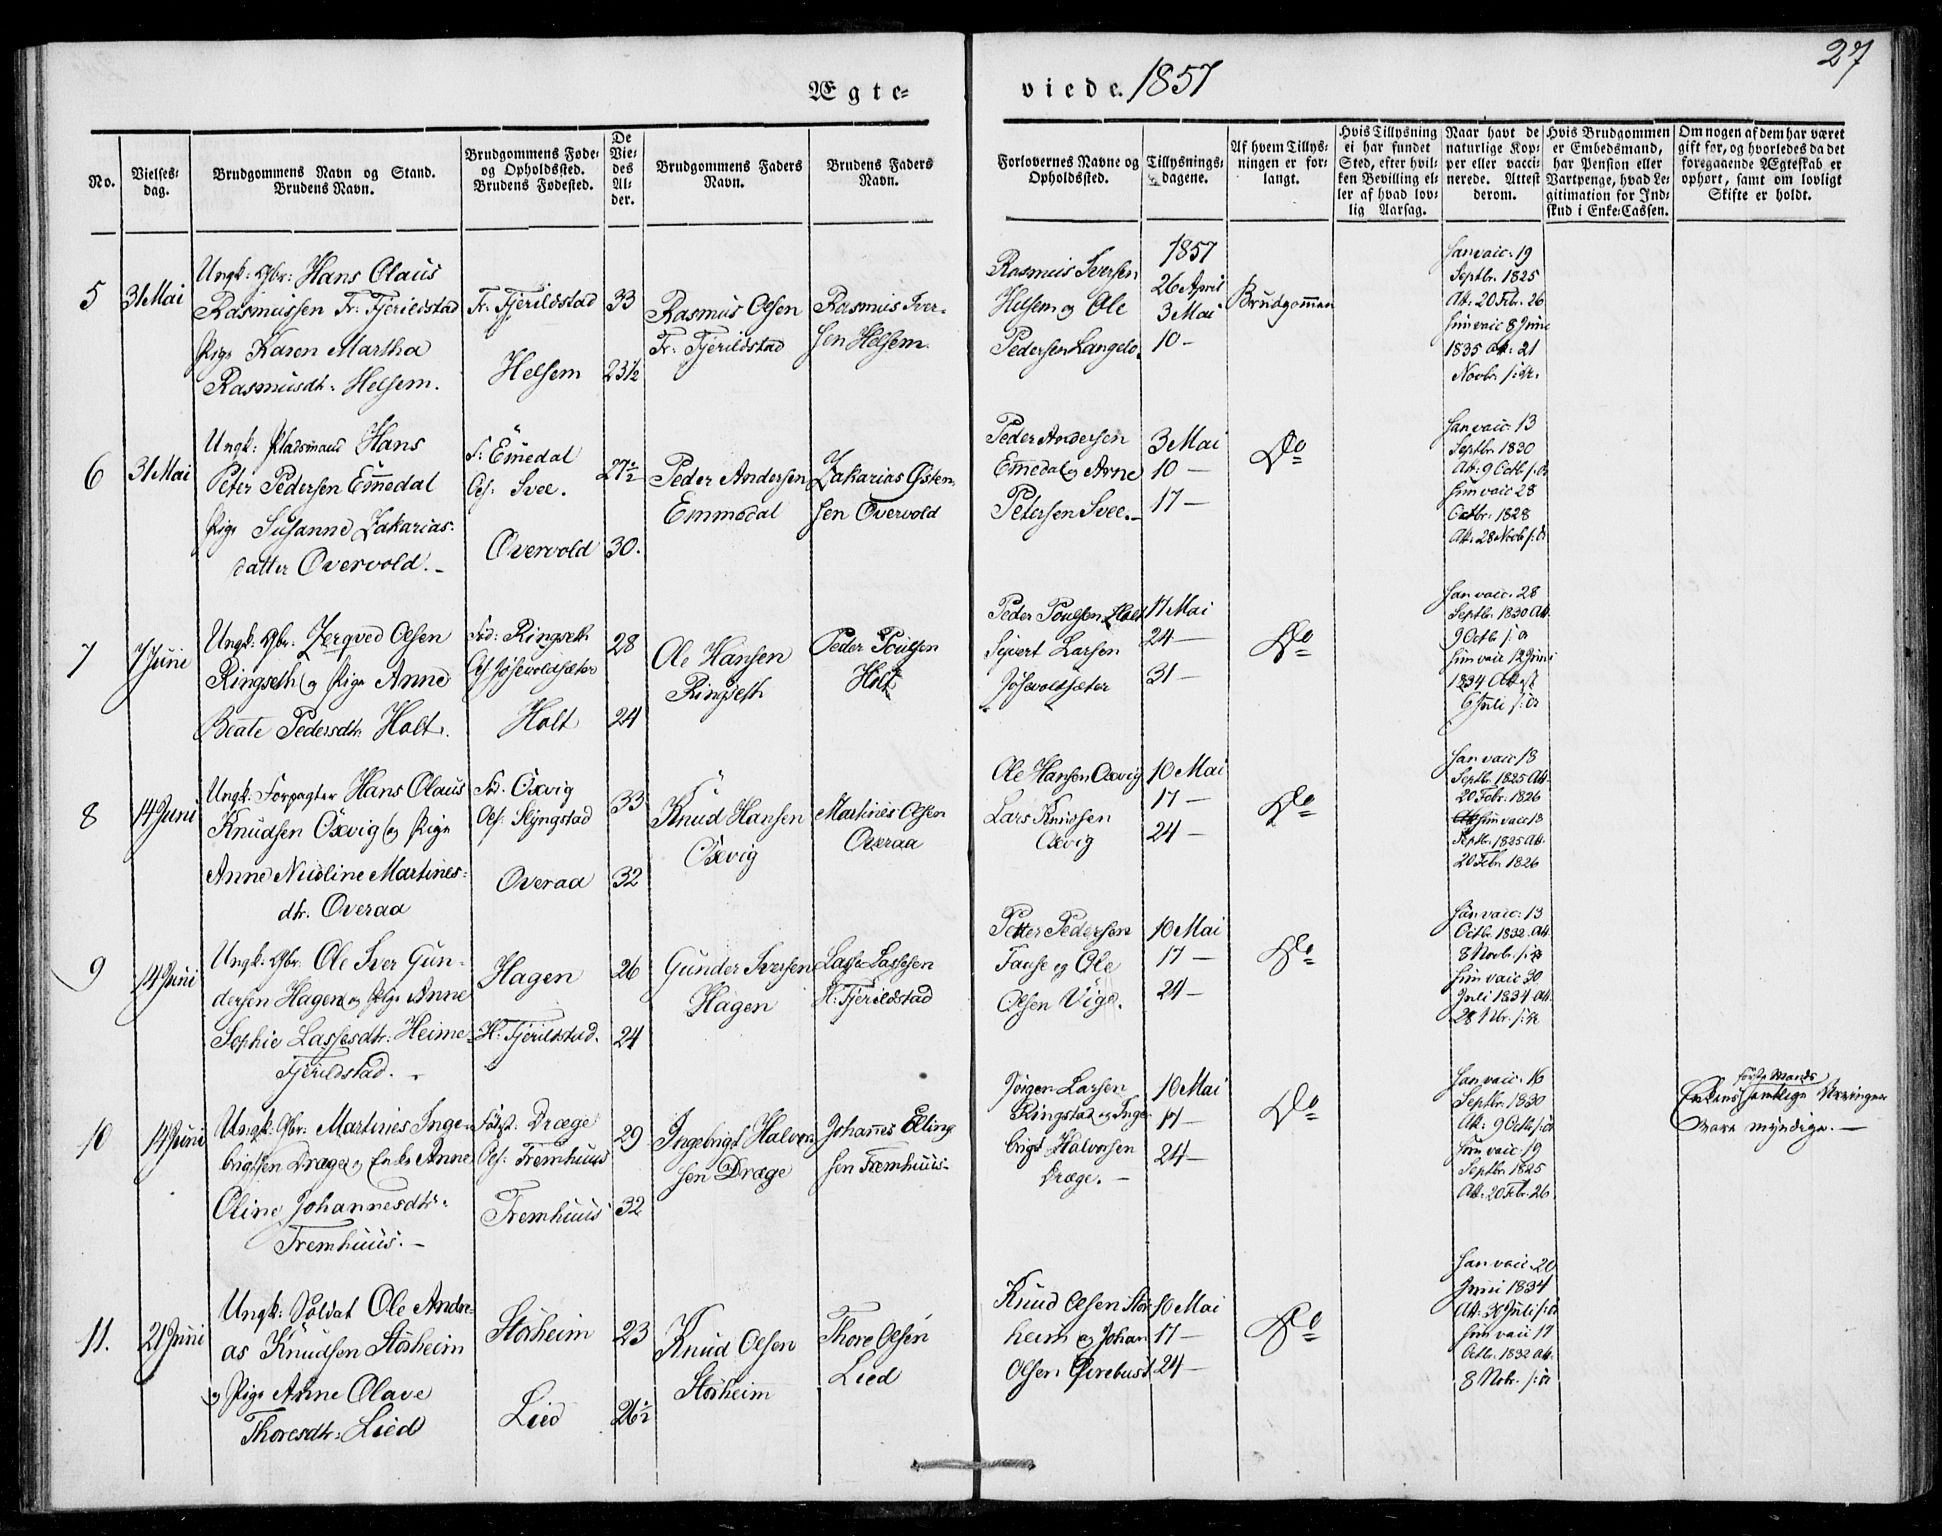 27
Ægte-
viede. 1857
No.
Vielses-
dag.
Brudgommens Navn og Stand.
Brudens Navn.
Brudgommens Føde-
og Opholdssted.
Brudens Fødested.
De
Vie-
des
Al-
der.
Brudgommens Faders
Navn.
Brudens Faders
Navn.
Forlovernes Navne og
Opholdssted.
Tillysnings-
dagene.
Af hvem Tillys-
ningen er for-
langt.
Hvis Tillysning
ei har fundet
Sted, efter hvil-
ken Bevilling el-
ler af hvad lov-
lig Aarsag.
Naar havt de
naturlige Kop-
per eller vacci-
nerede. Attest
derom.
Hvis Brudgommen
er Embedsmand,
har Pension eller
Vartpenge, hvad Le-
gitimation for Ind-
skud i Enke-Cassen.
Om nogen af dem har været
gift før, og hvorledes da det
foregaaende Ægteskab er
ophørt, samt om lovligt
Skifte er holdt.
5
31 Mai
Ungk: Gbr: Hans Olaus
Rasmussen Fr: Fjerildstad
Pige Karen Martha
Rasmusdt: Helsem.
Fr: Fjerildstad
Helsem
33
23½
Rasmus Olsen
Fr: Fjerildstad
Rasmus Iver-
sen Helsem.
Rasmus Iversen
Helsem og Ole
Pedersen Langelo.
1857
26 April
3 Mai
10 -
Brudgommen
Han vacc: 19
Septbr: 1825
Att: 20 Feb: 26
hun vacc 8 Juni
1835 Att: 21
Novbr s: A.
6
31 Mai
Ungk: Pladsmand Hans
Peter Pedersen Em̅edal
Pige Susanne Zakarias-
datter Overvold. -
F: Em̅edal
Oph: Svee.
Overvold
27½
30.
Peder Andersen
Emmedal
Zakarias Østen-
sen Overvold
Peder Andersen
Em̅edal og Arne
Petersen Svee. -
3 Mai
10 -
17 -
Do
Han vacc: 13
Septbr: 1830
Att: 9 Octb s: A
hun vacc 28
Octbr: 1828
Att: 28 Novb s: A
7
7 Juni
Ungk: Gbr. Zerqved Olsen
Ringseth og Pige Anne
Beate Pedersdt: Holt.
Fød: Ringseth
Holt
28
24
Ole Hansen
Ringseth
Peder Poulsen
Holt
Peder Poulsen Holt
Syvert Larsen
17 Mai
24 -
31 -
Do
Han vacc: 28
Septbr: 1830 Att:
9 Octb s: A
hun vacc 12 Juni
1834 Attest
6 Juli s: A
8
14 Juni
Ungk: Forpagter Hans Olaus
Knudsen Oxvig og Pige
Anne Nicoline Martines-
dtr. Overaa
Fød. Oxvig
Oph: Slyngstad
Overaa
33
32
Knud Hansen
Oxvig
Martines Olsen
Overaa
Ole Hansen Oxvig
Lars Knudsen
Oxvig
10 Mai
17 -
24 -
Do
Han vacc 18
Septbr: 1825 Att:
20 Febr. 1826
hun vacc 18
Septbr: 1825 Att:
20 Febr. 1826
9
14 Juni
Ungk: Gbr. Ole Iver Gun-
dersen Hagen og Pige Anne
Sophie Lassesdtr: Heime-
Fjerildstad. -
Hagen
H: Fjerildstad.
26
24
Gunder Iversen
Hagen
Lasse Lassesen
H: Fjerildstad
Petter Pedersen
Fause og Ole
Olsen Vige.
10 Mai
17 -
24 -
Do
Han vacc: 13
Octbr: 1832 Att:
8 Novb. s: A
hun vacc 30
Juli 1834 Att:
28 Nbr. s: A
10
14 Juni
Ungk: Gbr: Martines Inge-
brigtsen Dræge og Enke Anne
Oline Johannesdtr:
Fremhuus. -
Fødst: Dræge
Oph: Fremhuus
Fremhuus
29
32
Ingebrigt Halvor-
sen Dræge
Johan̅es Elling-
sen Fremhuus-
Jørgen Larsen
Ringstad og Inge-
brigt Halvorsen
Dræge. -
10 Mai
17 -
24 -
Do
Han vacc: 16
Septbr: 1830
Att: 9 Octb s: A
hun vacc: 19
Septbr: 1825
Att: 20 Feb: 26
første Mands
Enkens samtlige Arvinger
vare myndige. -
11.
21 Juni
Ungk: Soldat Ole Andre-
as Knudsen Storheim
og Pige Anne Olave
Thoresdtr: Lied
Storheim
Lied
23
26½
Knud Olsen
Storheim
Thore Olsen
Lied
Knud Olsen Stor-
heim og Johan
Olsen Øvrebust
10 Mai
17 -
24 -
Do
Han vacc. 20
Juni 1834
Att: 30 Juli s: A
hun vacc 17
Octb. 1832 Att.
8 Nvbr. s: A